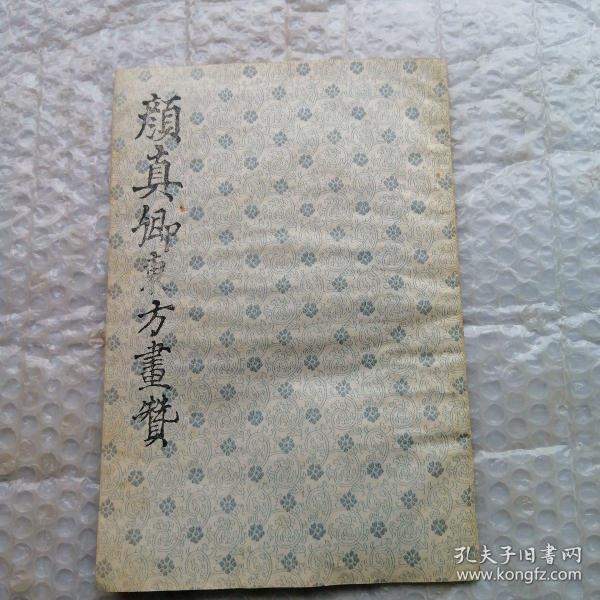 顏真卿東方畫贊
孔夫子旧書网
www.kongfz.com